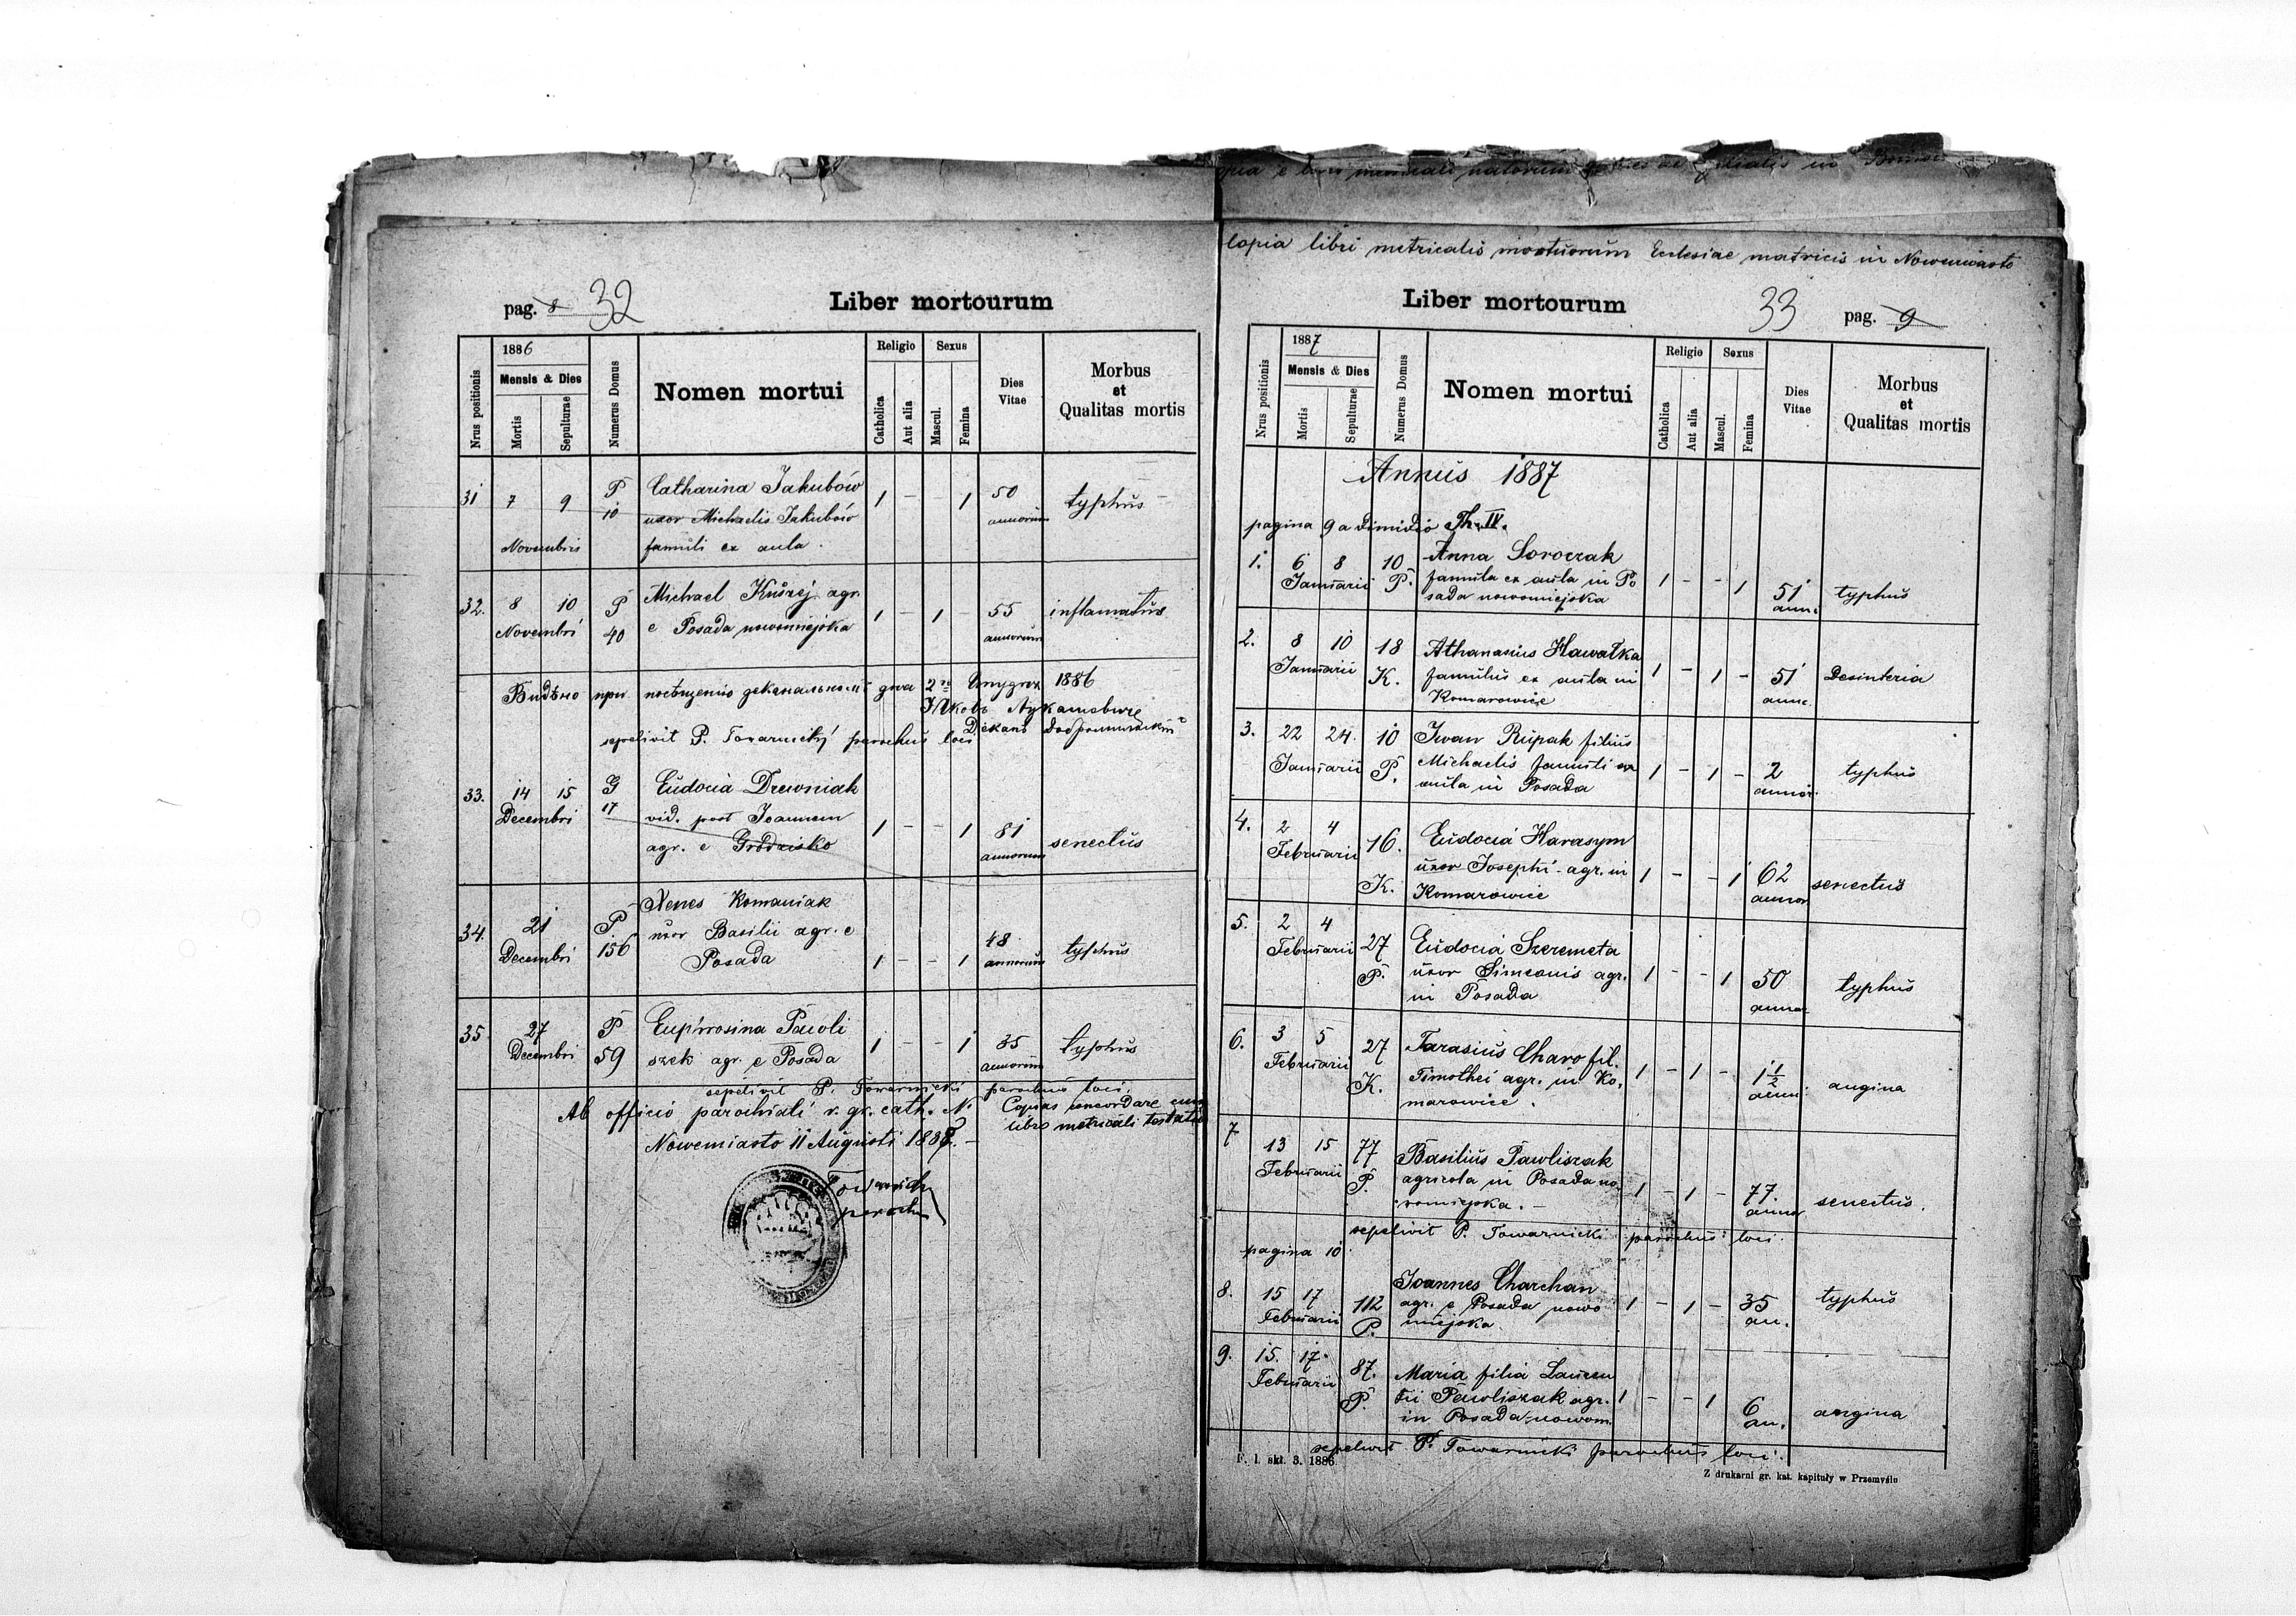 pag. 8 32
Liber mortourum
1886
Nrus positionis
Mensis & Dies
Mortis
Sepulturae
Numerus Domus
Nomen mortui
Religio
Catholica
Aut alia
Sexus
Mascul.
Femina
Dies Vitae
Morbus
et
Qualitas mortis
31 7 9 P Catharina Jakubów 1 - - 1 50 typhus
10 uxor Michaelis Jakubów annorum
Novembris famuli ex aula.
32. 8 10 P Michael Kuśzej agr. 1 - 1 - 55 inflamatus
Novembri 40 e Posada nowomiejska annorum
Видѣно при 1886
sepelivit P. Towarnicky parochus loci
33. 14 15 G Eudocia Drewniak
Decembri 17 vid. post Joannem 1 - - 1 81 senectus
agr. e Grodzisko annorum
Xenes Komaniak
34. 21 P. uxor Basilii agr. e 48 typhus
Decembri 156 Posada 1 - - 1 annorum
35 27 P Euphrosina Pawoli 1 - - 1 35 typhus
Decembri 59 szek agr. e Posada annorum
sepelivit P. Towarnicki parochus loci.
Ab officio parochiali r. gr. cath. N. Copias concordare cum
Nowemiasto 11 Augusti 1888. - libro metricali testatur
Towarnicki
parochus
Copia libri metricalis mortuorum Ecclesiae matricis in Nowemiasto
Liber mortourum
33 pag. 9
1887
Nrus positionis
Mensis & Dies
Mortis
Sepulturae
Numerus Domus
Nomen mortui
Religio
Catholica
Aut alia
Sexus
Mascul.
Femina
Dies Vitae
Morbus
et
Qualitas mortis
Annus 1887
pagina 9 a dimidio Th. IV.
1. 6 8 10 Anna Soroczak
Januarii P. famula ex aula in Po 1 - - 1 51 typhus
sada nowomiejska ann.
2. 8 10 18 Athanasius Hawałka
Januarii K. famulus ex aula in 1 - 1 - 51 Desinteria
Komarowice ann.
3. 22 24. 10 Iwan Rupak filius
Januarii P. Michaelis famuli ex 1 - 1 - 2 typhus
aula in Posada annor.
4. 2 4 16. Eudocia Harasym
Februarii uxor Josephi agr. in 1 - - 1 62 senectus
K. Komarowice annor
5. 2 4 27 Eudocia Szeremeta
Februarii P. uxor Simeonis agr. 1 - - 1 50 typhus
in Posada annor
6. 3 5 27 Tarasius Charo fil.
Februarii K. Timothei agr. in Ko, 1 - 1 - 1 1/2 angina
marowice. ann.
7 13 15 77 Basilius Pawliszak
Februarii P. agricola in Posada no 1 - 1 - 77. senectus.
womiejska. - annor
sepelivit P. Towarnicki parochus loci.
pagina 10
8. 15 17 112 Joannes Charchan
Februarii P. agr. e Posada nowo 1 - 1 - 35 typhus
miejska. an.
9. 15. 17. 87. Maria filia Lauren
Februarii P. tii Pawliszak agr. 1 - - 1 6 angina
in Posada nowom. an.
sepelivit P. Towarnicki parochus loci.
F. l. skt. 3. 1886.
Z drukarni gr. kat. kapituły w Przemyślu